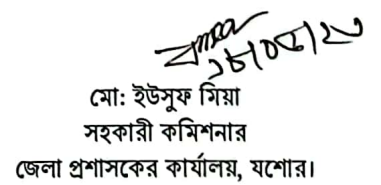 মো: ইউসুফ মিয়া
সহকারী কমিশনার
জেলা প্রশাসকের কার্যালয়, যশোর।